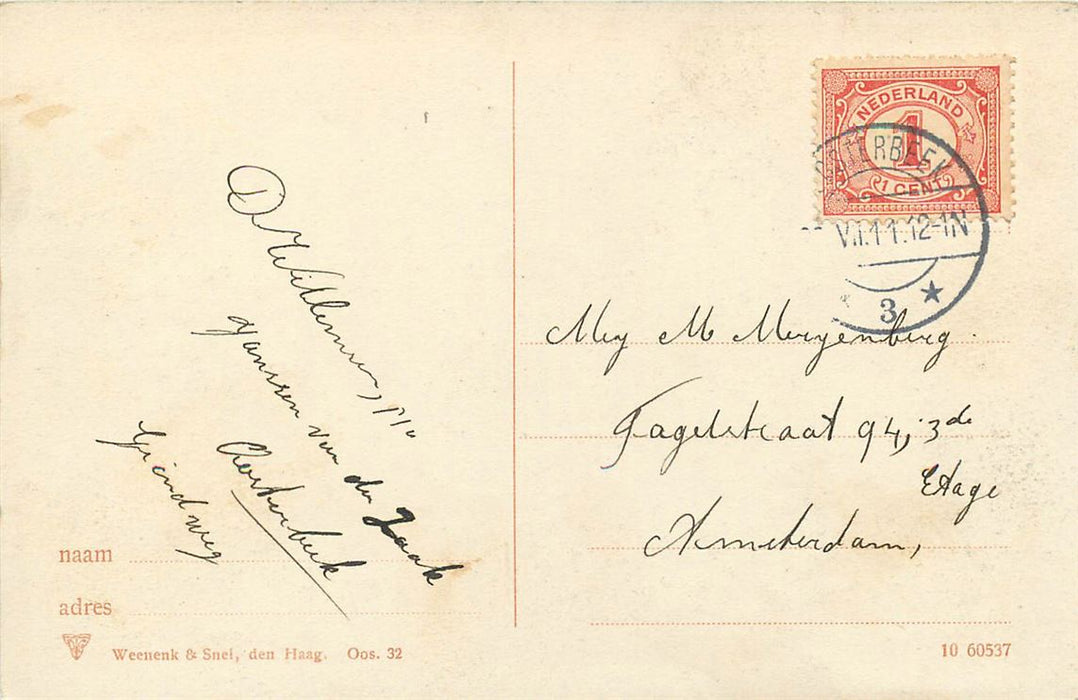 NEDERLAND
1
1 CENT
OSTERBEEK
VII.11.12-1N
3
A Willemsen, p/a
Janssen van der Zaak
Oosterbeek
Grindweg
Mej M Meryenberg.
Fagelstraat 94, 3de
Etage
Amsterdam,
naam
adres
Weenenk & Snel, den Haag. Oos. 32
10 60537